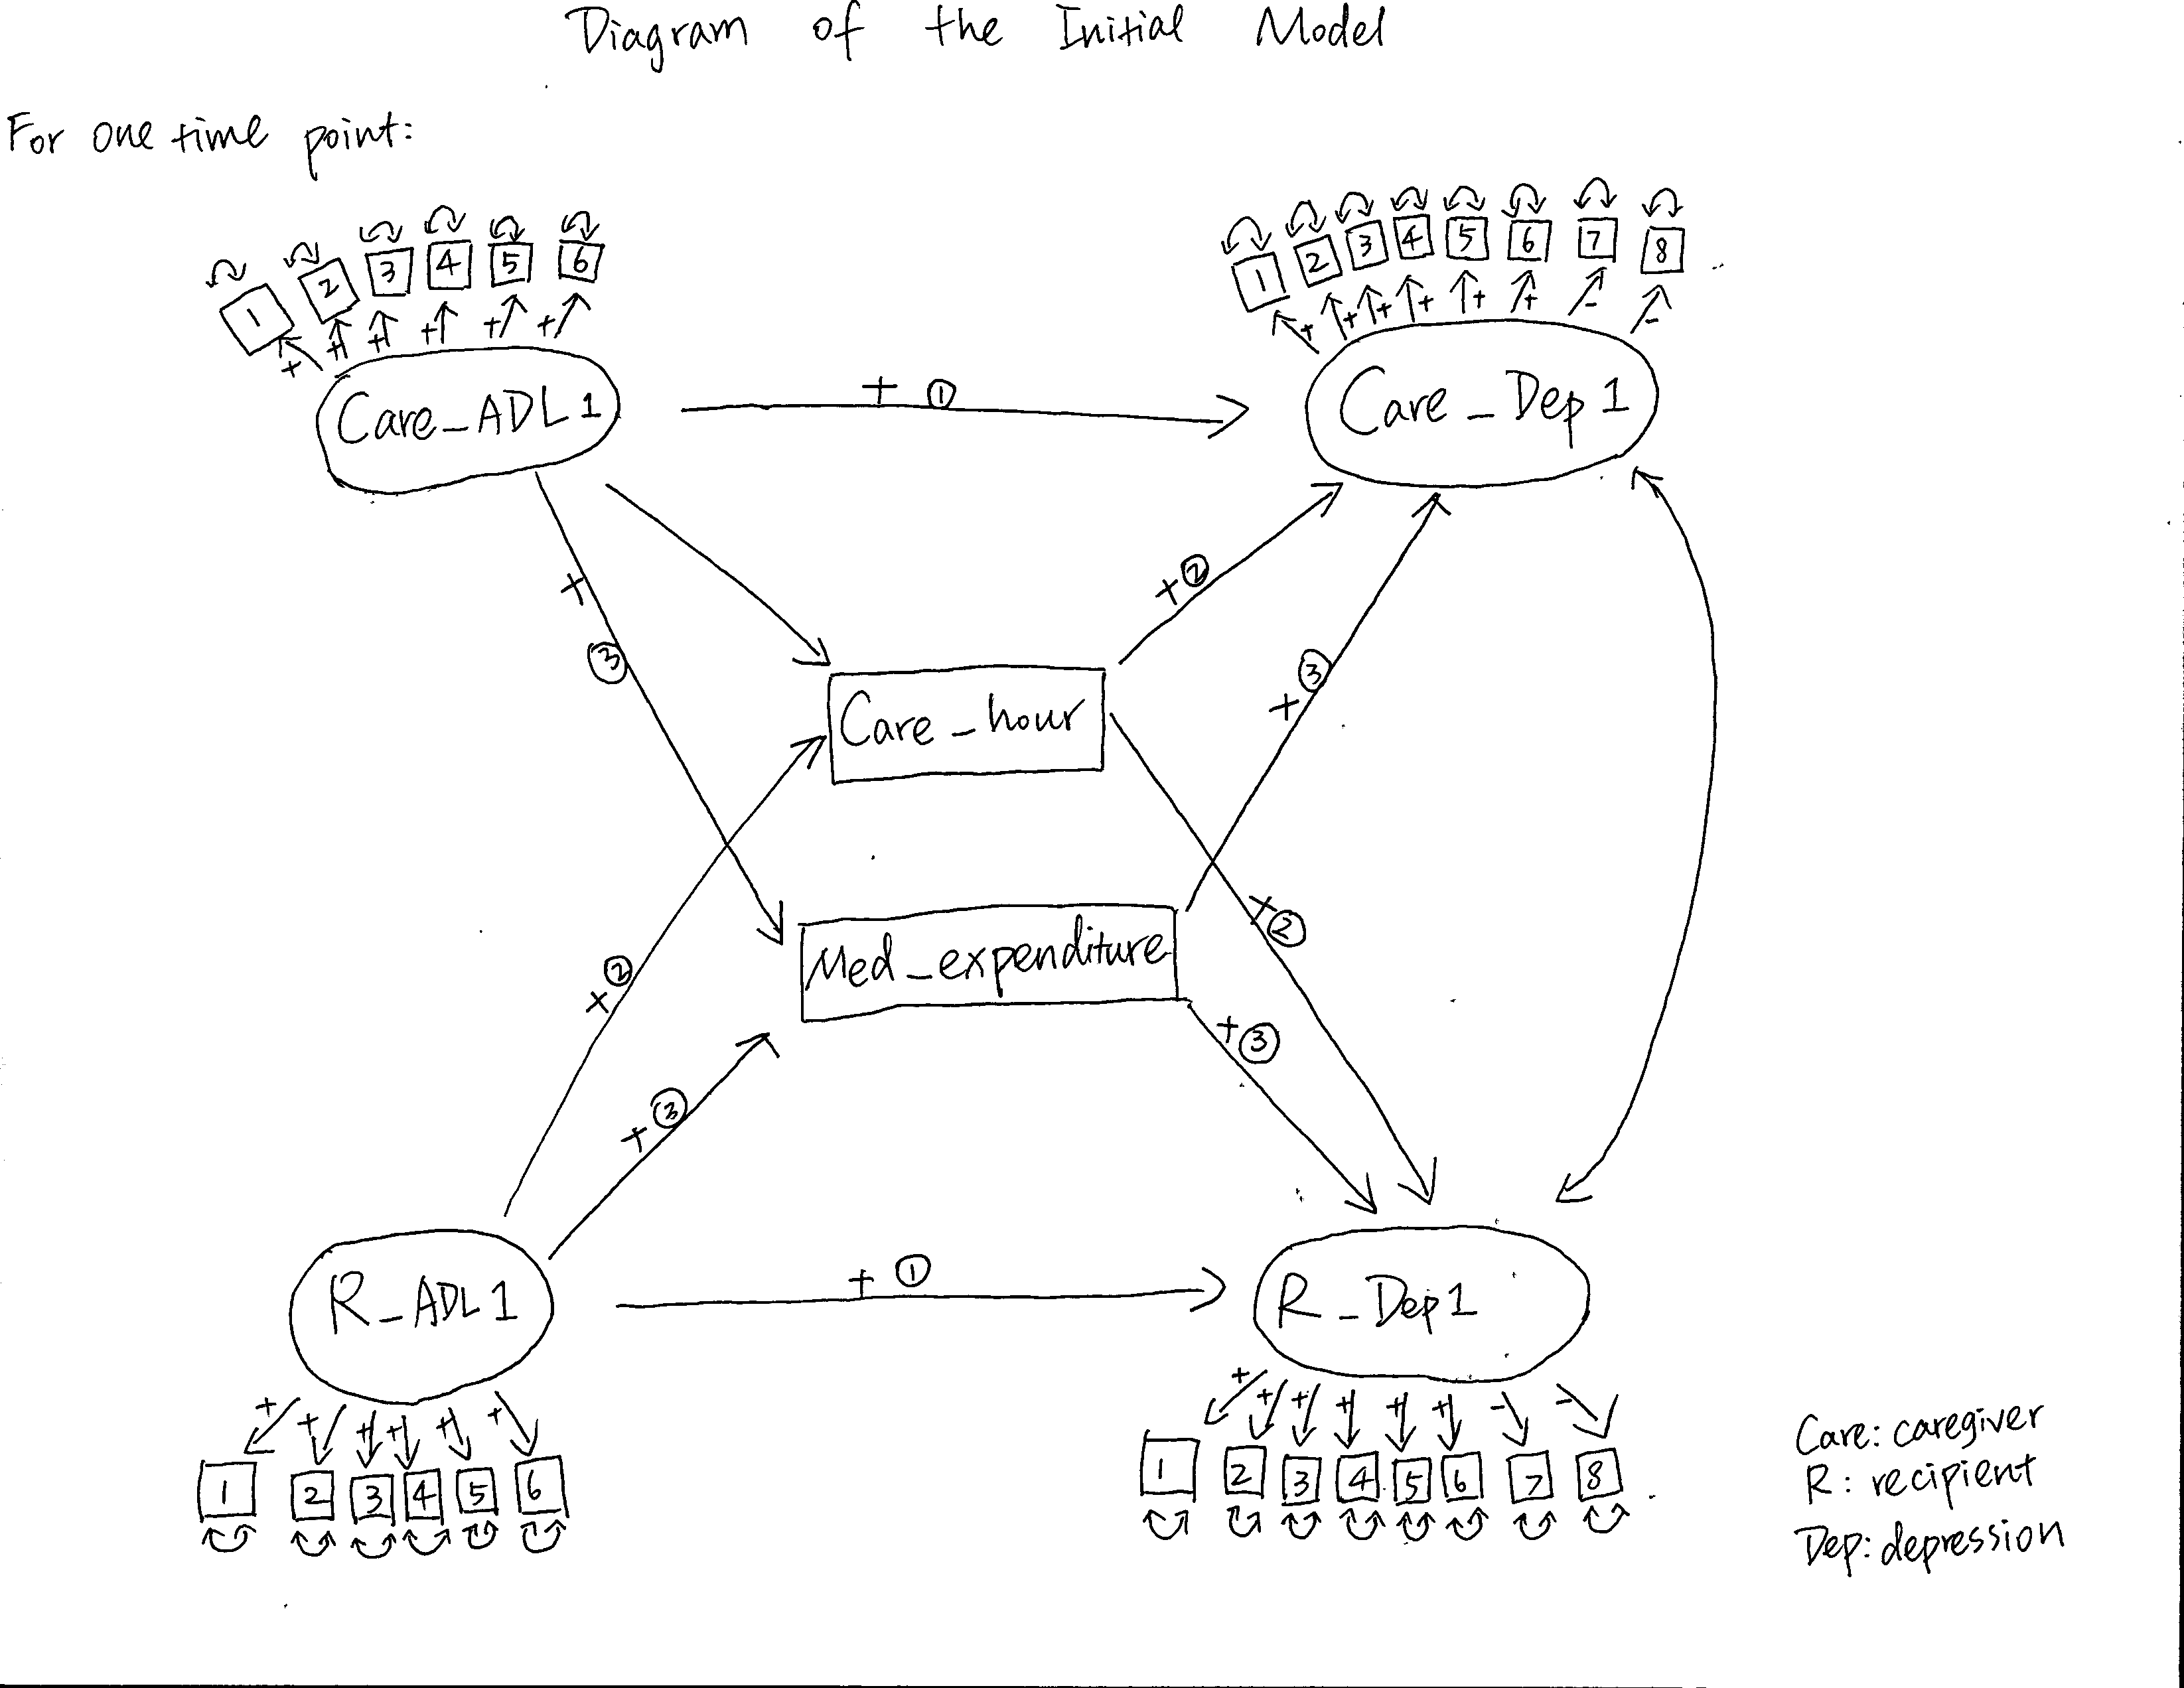 Diagram of the Initial Model
For one time point:
1 2 3 4 5 6
+ + + + + +
1 2 3 4 5 6 7 8
+ + + + + + - -
Care_ADL1
+ ①
Care_Dep1
+ ②
+
③
+ ③
Care_hour
Med_expenditure
+ ②
+ ②
+ ③
+ ③
R_ADL1
+ ①
R_Dep1
+ + + + + +
1 2 3 4 5 6
+ + + + + + - -
1 2 3 4 5 6 7 8
Care: caregiver
R: recipient
Dep: depression